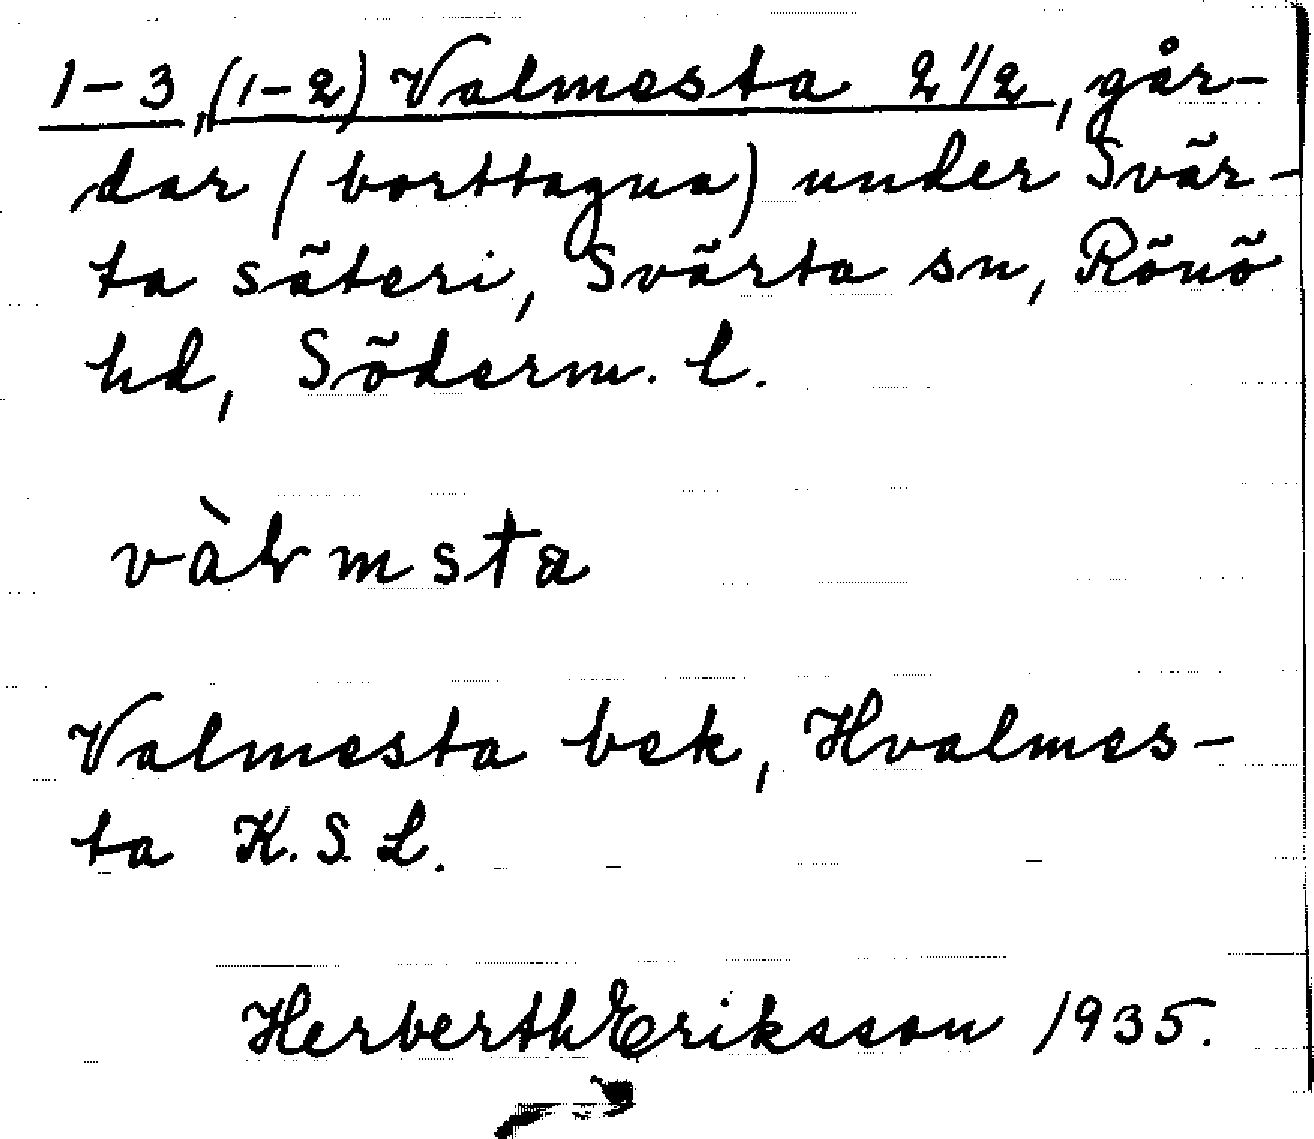 1-3, (1-2) Valmesta 2 1/2, går-
dar (borttagna) under Svär-
ta säteri, Svärta sn, Rönö
hd, Söderm. l.
vàⱡmsta
Valmesta bek, Hvalmes-
ta K. S. L.
Herberth Eriksson 1935.